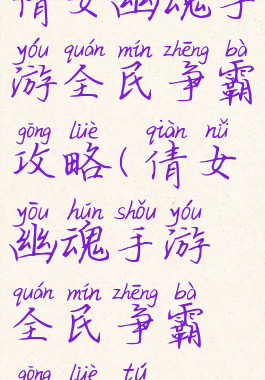 倩女幽魂手
yóu quán mín zhēng bà
游全民争霸
gōng lüè qiàn nǚ
攻略(倩女
yōu hún shǒu yóu
幽魂手游
quán mín zhēng bà
全民争霸
gōng lüè tú